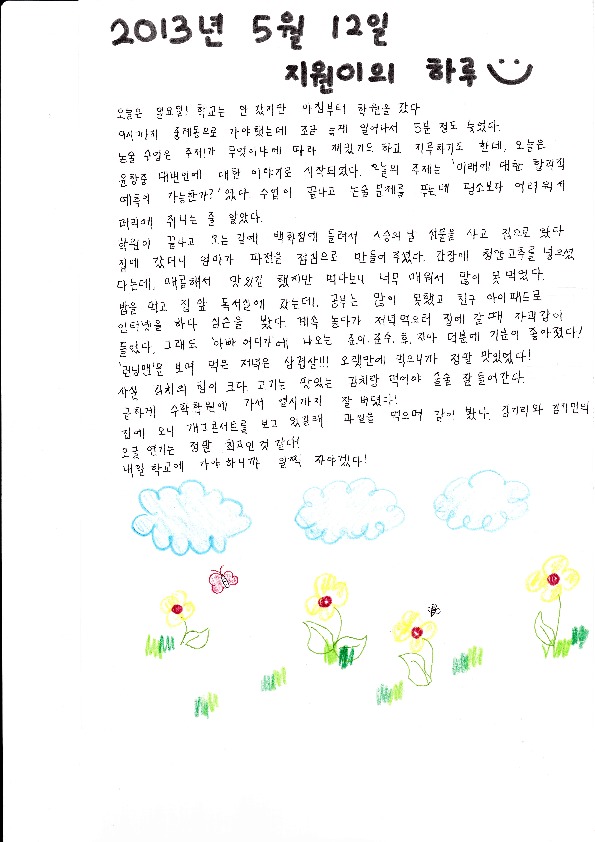 2013년 5월 12일
지원이의 하루
오늘은 일요일! 학교는 안 갔지만 아침부터 학원을 갔다
9시까지 출제동으로 가야했는데 조금 늦게 일어나서 5분 정도 늦었다.
논술 수업은 주제가 무엇이냐에 따라 재밌기도 하고 지루하기도 한데, 오늘은
윤창중 대변인에 대한 이야기로 시작되었다. 오늘의 주제는 '미래에 대한 합리적
예측이 가능한가?'였다 수업이 끝나고 논술문제를 푸는데 평소보다 어려워서
머리에 쥐나는 줄 알았다.
학원이 끝나고 오는 길에 백화점에 들려서 스승의 날 선물을 사고 집으로 왔다
집에 갔더니 엄마가 파전을 점심으로 만들어주셨다. 간장에 청양고추를 넣으셨
다는데, 매콤해서 맛있긴 했지만 먹다보니 너무 매워서 많이 못 먹었다.
밥을 먹고 집 앞 독서실에 갔는데, 공부는 많이 못했고 친구 아이패드로
인터넷을 하다 실슨을 봤다. 계속 놀다가 저녁먹으러 집에 갈 때 자괴감이
들었다. 그래도 '아빠 어디가'에 나오는 준이, 준수, 후, 지아 덕분에 기분이 좋아졌다!
'런닝맨'을 보며 먹은 저녁은 삼겹살!!! 오랫만에 먹으니까 정말 맛있었다!
사실 김치의 힘이 크다 고기는 맛있는 김치랑 먹어야 술술 잘 들어간다.
급하게 수학학원에 가서 열시까지 잘 버텼다!
집에 오니 개그콘서트를 보고 있길래 과일을 먹으며 같이 봤다. 김기리와 김지민의
오글 연기는 정말 최고인 것 같다!
내일 학교에 가야 하니까 일찍 자야겠다!